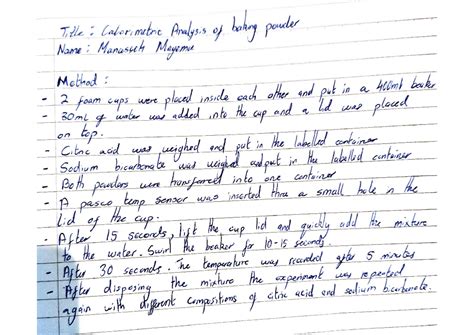 Title : Calorimetric Analysis of baking powder
Name : Manasseh Mayema
Method :
- 2 foam cups were placed inside each other and put in a 400ml beaker
- 30ml of water was added into the cup and a lid was placed
on top.
- Citric acid was weighed and put in the labelled container
- Sodium bicarbonate was weighed and put in the labelled container
- Both powders were transferred into one container
- A pasco temp sensor was inserted thru a small hole in the
lid of the cup.
- After 15 seconds, lift the cup lid and quickly add the mixture
to the water. Swirl the beaker for 10-15 seconds.
- After 30 seconds. The temperature was recorded after 5 minutes
- After disposing the mixture the experiment was repeated
again with different compositions of citric acid and sodium bicarbonate.